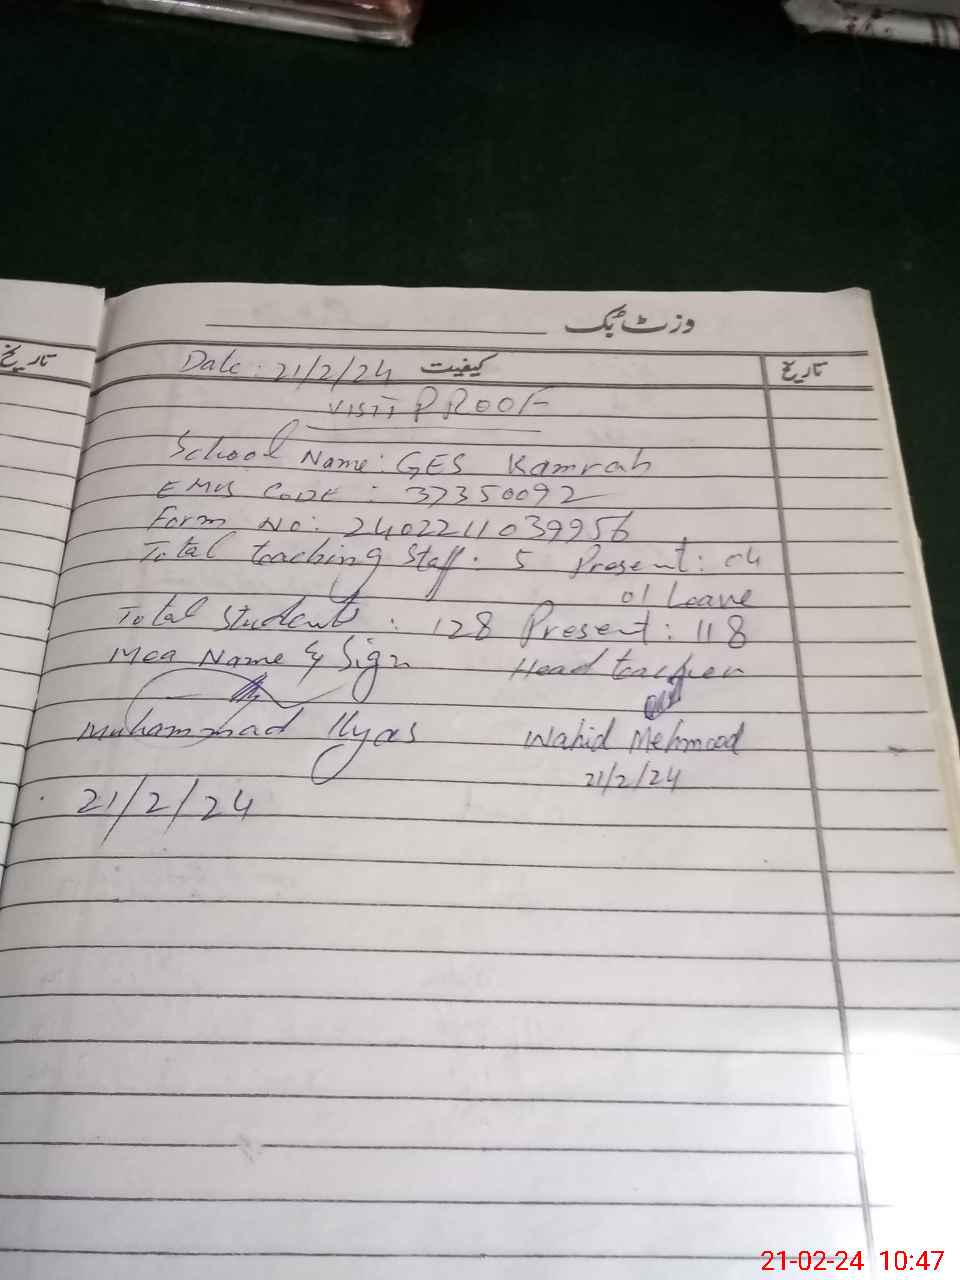 وزٹ بک
تاریخ
Date: 21/2/24 کیفیت تاریخ
VISIT PROOF
School Name: GES Kamrah
EMIS CODE: 37350092
Form No: 2402211039956
Total teaching Staff: 5 Present: 04
01 Leave
Total Students: 128 Present: 118
Mea Name & Sign Head teacher
Muhammad Ilyas Wahid Mehmood
21/2/24
21/2/24
21-02-24 10:47